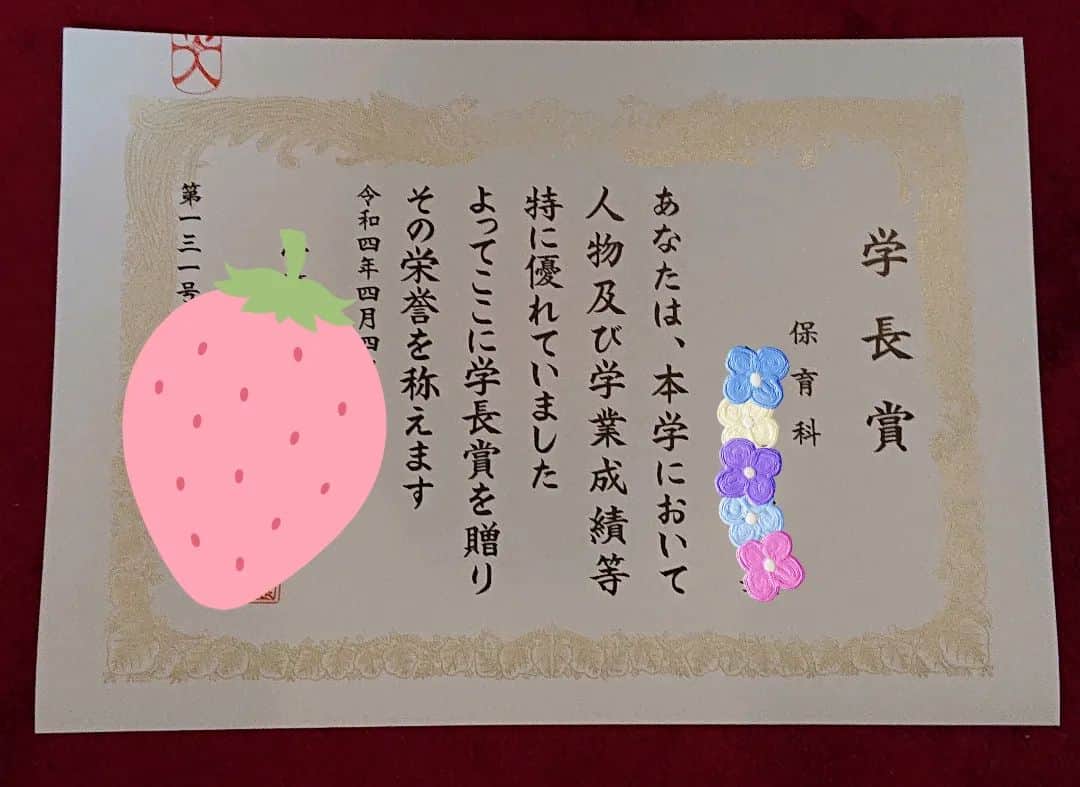 学長賞
保育科
あなたは、本学において
人物及び学業成績等
特に優れていました
よってここに学長賞を贈り
その栄誉を称えます
令和四年四月四
第一三一号